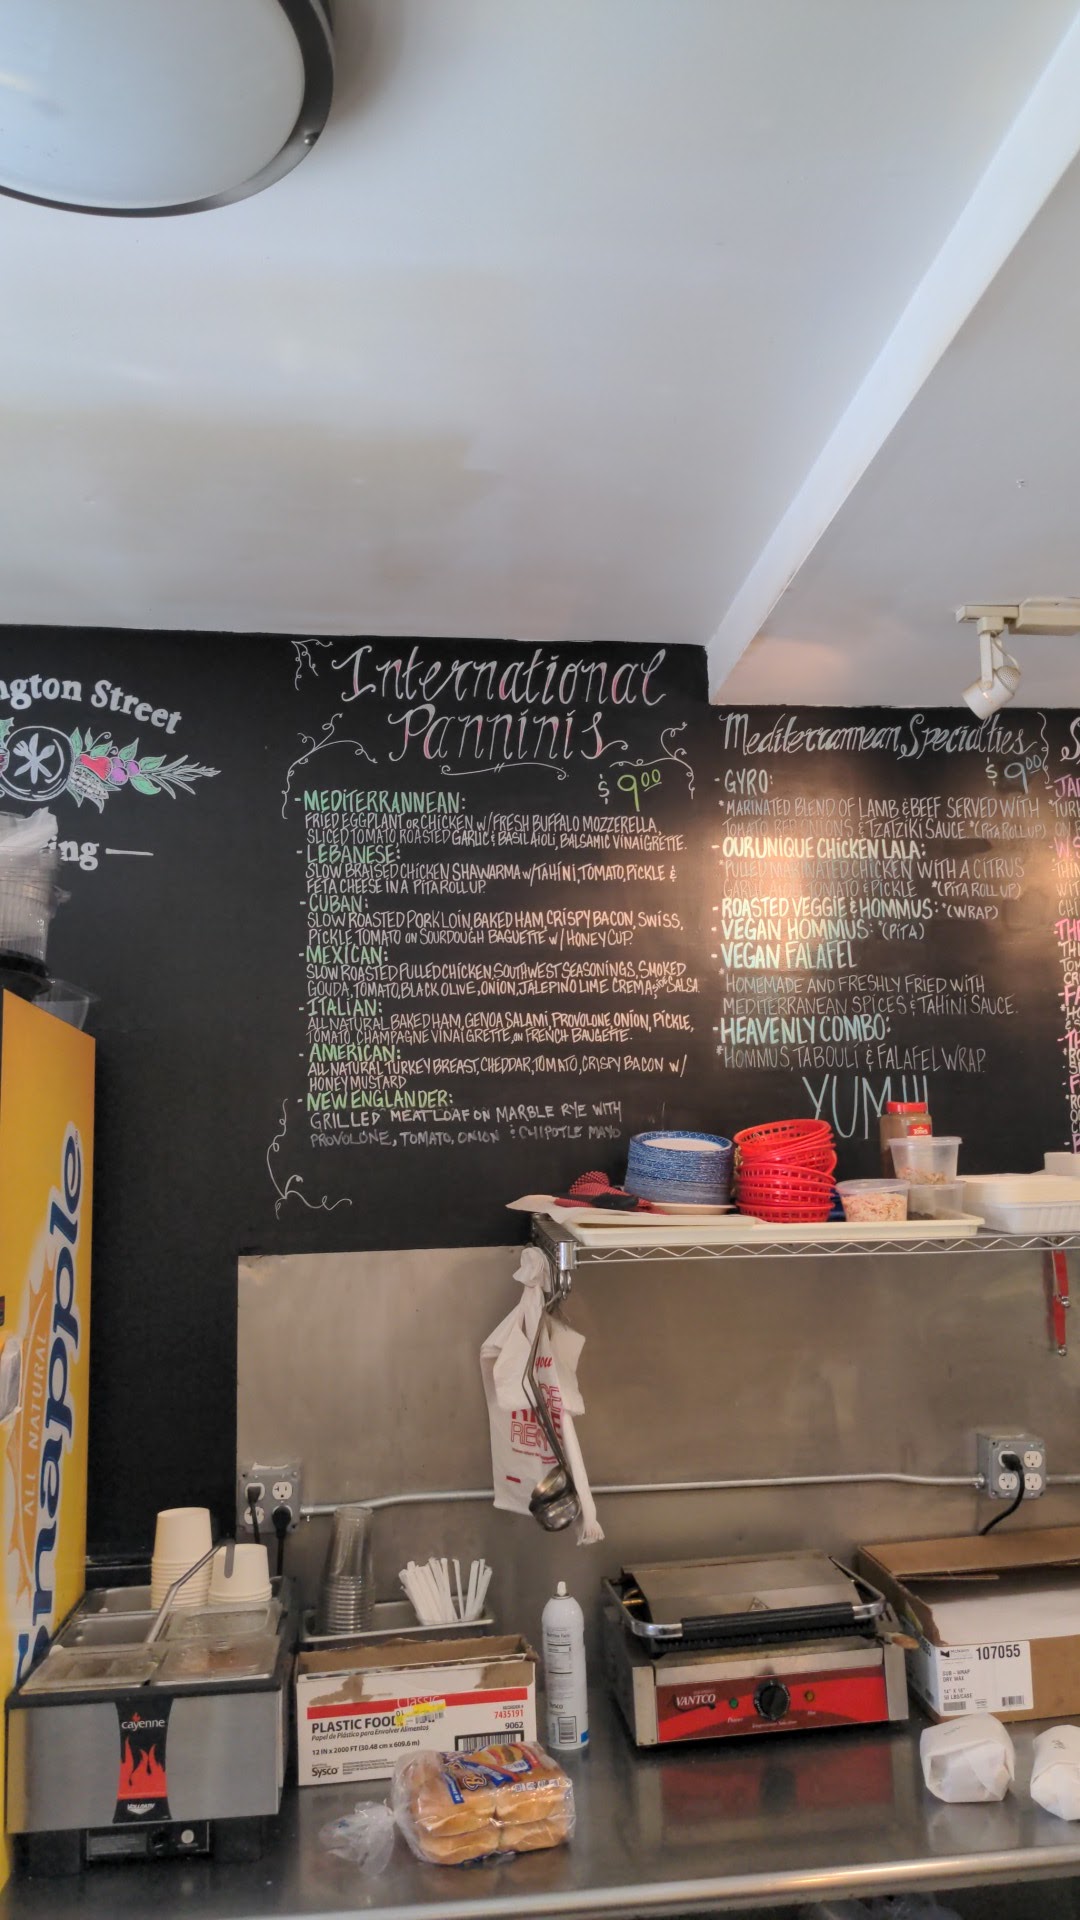 ngton Street
ing —
International
Panninis
$ 9.00
-MEDITERRANNEAN:
FRIED EGGPLANT OR CHICKEN W/ FRESH BUFFALO MOZZERELLA,
SLICED TOMATO ROASTED GARLIC & BASIL AIOLI, BALSAMIC VINAIGRETTE.
-LEBANESE:
SLOW BRAISED CHICKEN SHAWARMA W/ TAHINI, TOMATO, PICKLE &
FETA CHEESE IN A PITA ROLL UP
-CUBAN:
SLOW ROASTED PORK LOIN, BAKED HAM, CRISPY BACON, SWISS,
PICKLE, TOMATO ON SOURDOUGH BAGUETTE W/ HONEY CUP.
-MEXICAN:
SLOW ROASTED PULLED CHICKEN, SOUTHWEST SEASONINGS, SMOKED
GOUDA, TOMATO, BLACK OLIVE, ONION, JALEPINO LIME CREMA, SALSA
-ITALIAN:
ALL NATURAL BAKED HAM, GENOA SALAMI, PROVOLONE, ONION, PICKLE,
TOMATO, CHAMPAGNE VINAIGRETTE, ON FRENCH BAUGETTE.
-AMERICAN:
ALL NATURAL TURKEY BREAST, CHEDDAR, TOMATO, CRISPY BACON W/
HONEY MUSTARD
-NEW ENGLANDER:
GRILLED MEATLOAF ON MARBLE RYE WITH
PROVOLONE, TOMATO, ONION & CHIPOTLE MAYO
Mediterrannean Specialties
$ 9.00
-GYRO:
*MARINATED BLEND OF LAMB & BEEF SERVED WITH
TOMATO, RED ONIONS & TZATZIKI SAUCE *(PITA ROLL UP)
-OUR UNIQUE CHICKEN LALA:
*PULLED MARINATED CHICKEN WITH A CITRUS
GARLIC AIOLI TOMATO & PICKLE *(PITA ROLL UP)
-ROASTED VEGGIE & HOMMUS: *(WRAP)
-VEGAN HOMMUS: *(PITA)
-VEGAN FALAFEL
*HOMEMADE AND FRESHLY FRIED WITH
MEDITERRANEAN SPICES & TAHINI SAUCE.
-HEAVENLY COMBO:
*HOMMUS, TABOULI & FALAFEL WRAP.
YUM!!!
ALL NATURAL
Snapple
cayenne
VOLLRATH
Classic
PLASTIC FOOD
Papel de Plástico para Envolver Alimentos
12 IN x 2000 FT (30.48 cm x 609.6 m)
Sysco
7435191
9062
AVANTCO
107055